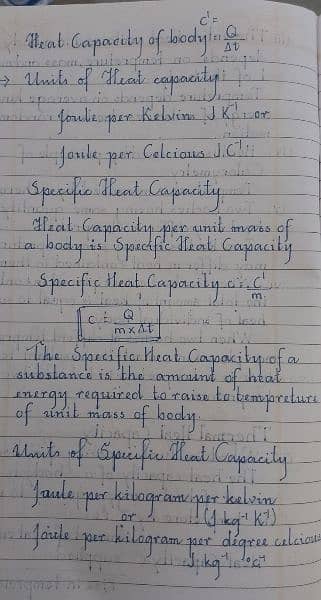 C' =
Heat Capacity of body = Q / Δt
→ Units of Heat capacity:
Joule per Kelvin J K⁻¹ or
Joule per Celcious J C⁻¹
Specific Heat Capacity
Heat Capacity per unit mass of
a body is Specific Heat Capacity
Specific Heat Capacity c = C' / m
c = Q / m x Δt
The Specific Heat Capacity of a
substance is the amount of heat
energy required to raise to tempreture
of unit mass of body.
Units of Specific Heat Capacity
Jaule per kilogram per kelvin
or (J kg⁻¹ K⁻¹)
Joule per kilogram per degree celcious
J kg⁻¹ °C⁻¹